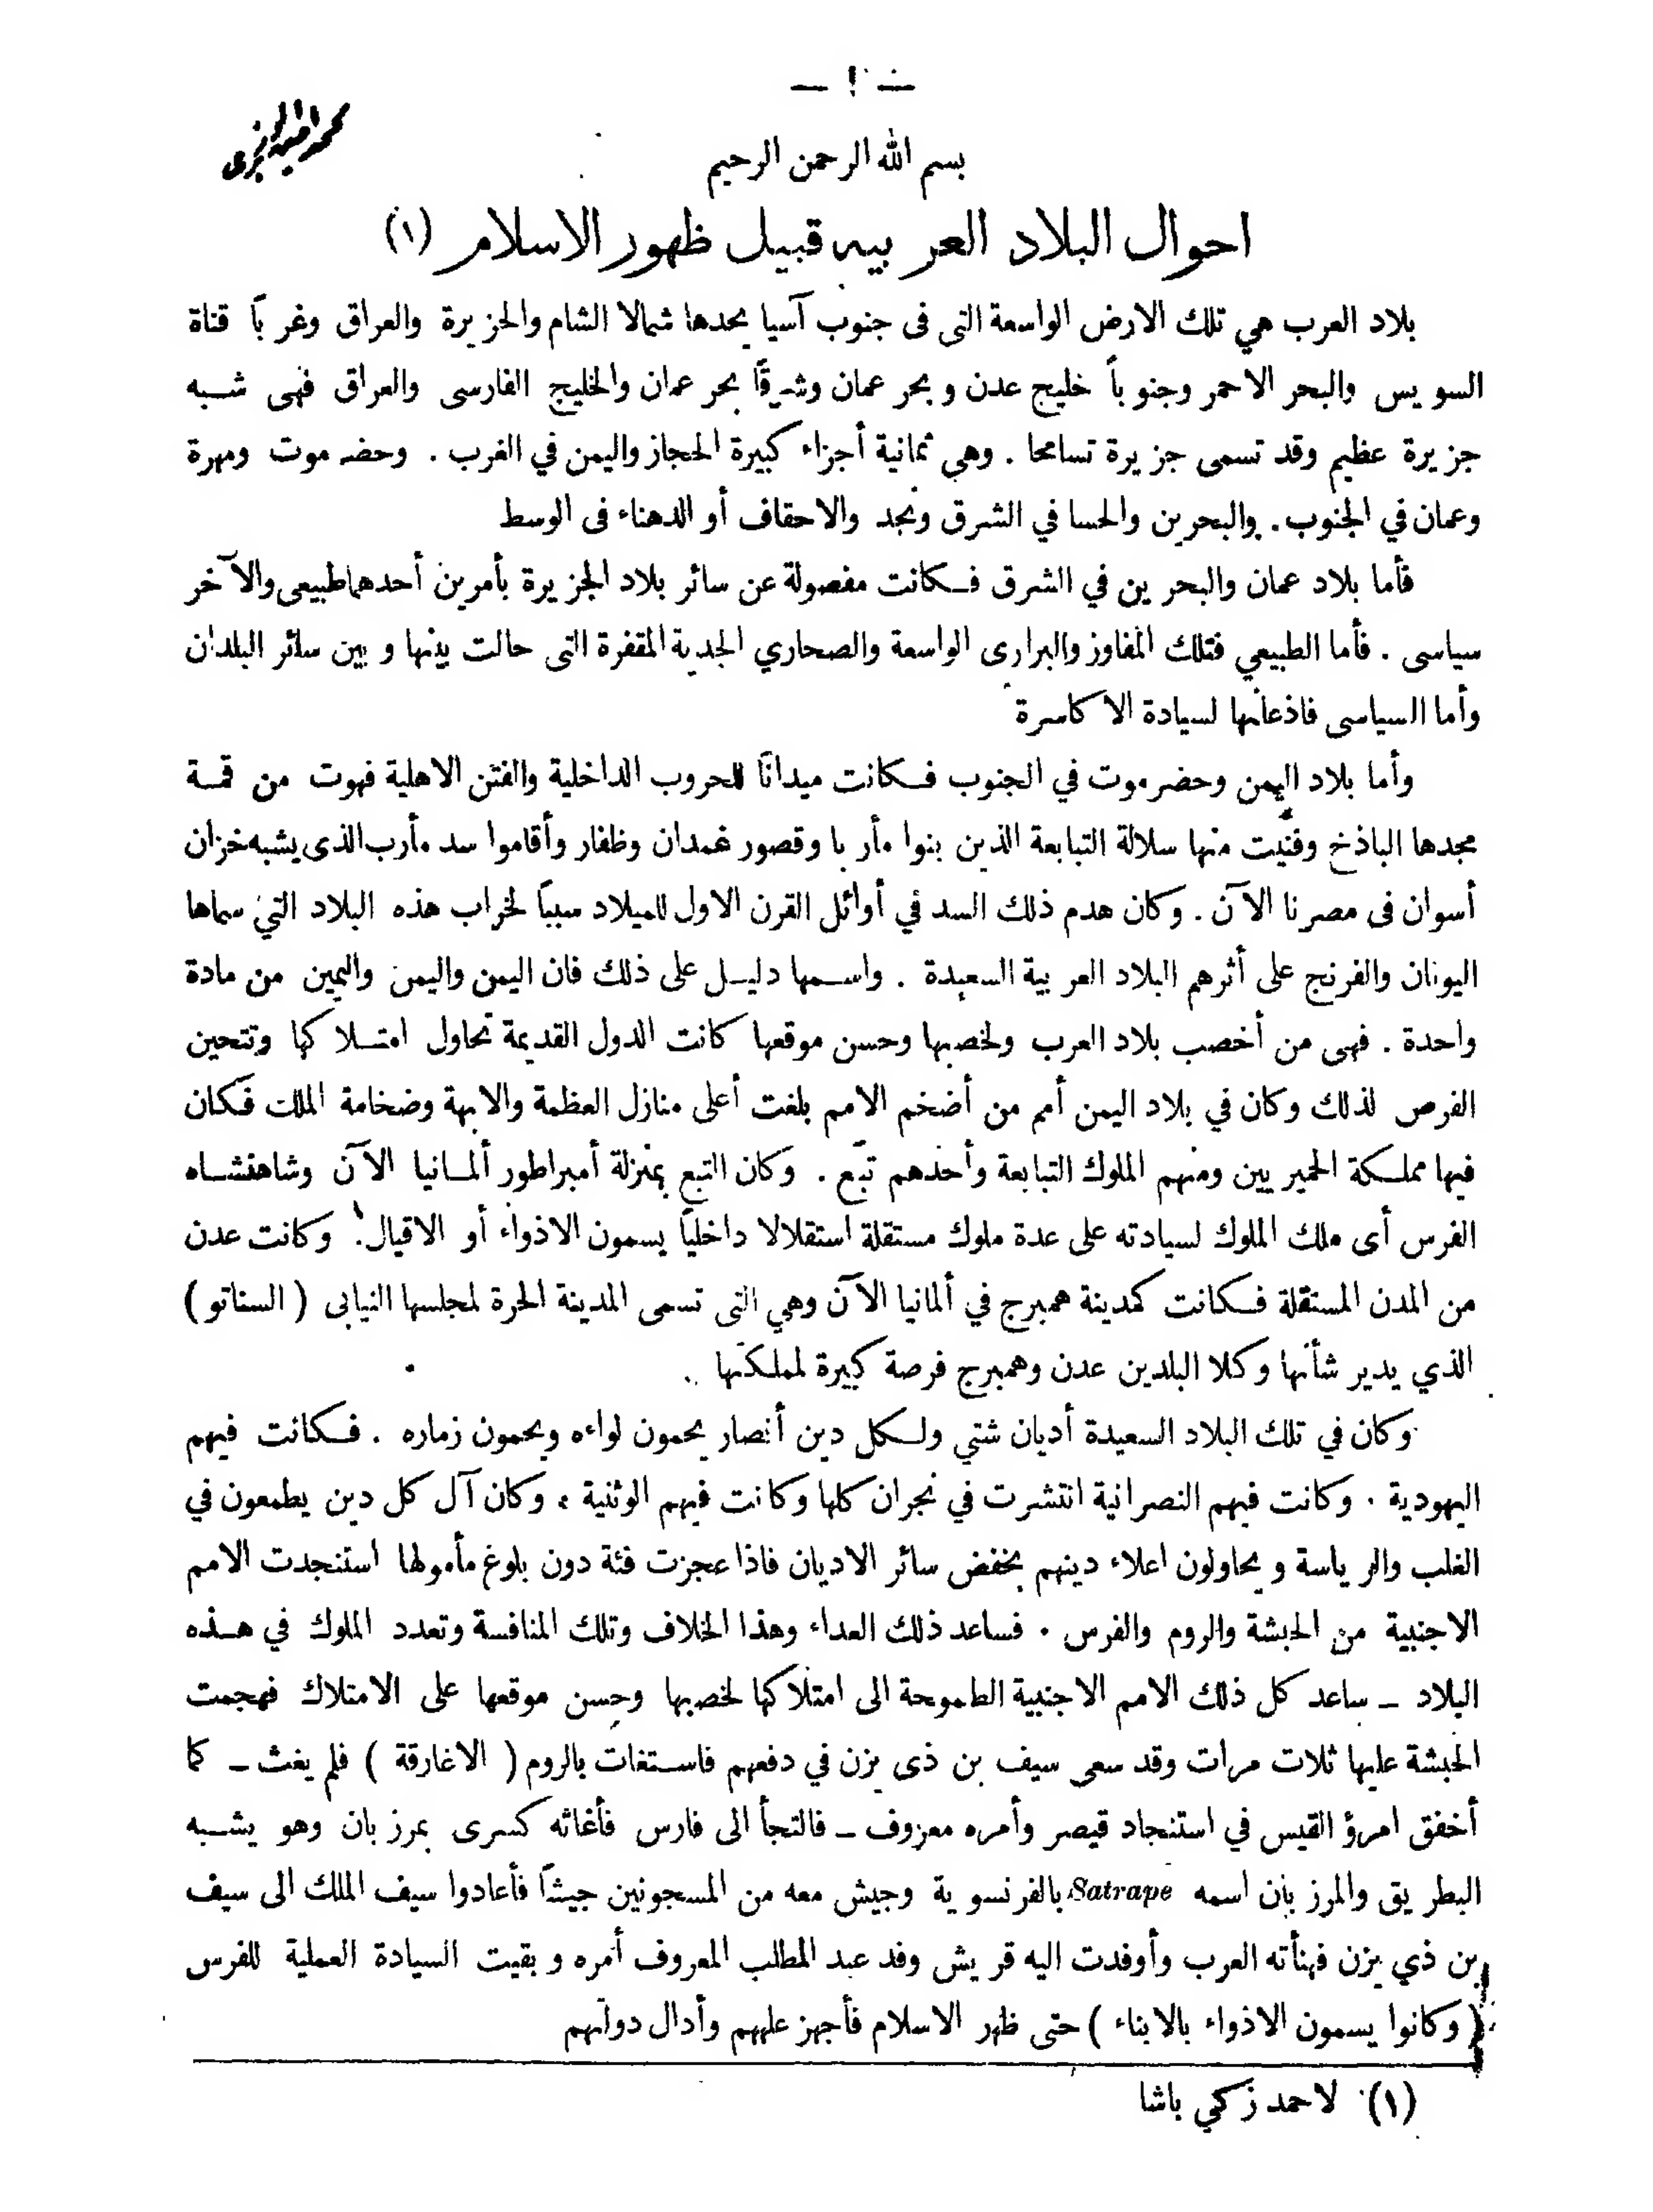 — ١ —
بسم الله الرحمن الرحيم
احوال البلاد العربيه قبيل ظهور الاسلام (١)
بلاد العرب هي تلك الارض الواسعة التى فى جنوب آسيا يحدها شمالا الشام والجزيرة والعراق وغرباً قناة
السويس والبحر الاحمر وجنوباً خليج عدن وبحر عمان وشرقاً بحر عمان والخليج الفارسى والعراق فهى شبه
جزيرة عظيم وقد تسمى جزيرة تسامحا . وهي ثمانية أجزاء كبيرة الحجاز واليمن في الغرب . وحضرموت ومهرة
وعمان في الجنوب . والبحرين والحسا في الشرق ونجد والاحقاف أو الدهناء فى الوسط
فأما بلاد عمان والبحرين في الشرق فكانت مفصولة عن سائر بلاد الجزيرة بأمرين أحدهما طبيعى والآخر
سياسى . فأما الطبيعي فتلك المفاوز والبرارى الواسعة والصحاري الجدبة المقفرة التى حالت بينها وبين سائر البلدان
وأما السياسى فاذعانها لسيادة الاكاسرة
وأما بلاد اليمن وحضرموت في الجنوب فكانت ميداناً للحروب الداخلية والفتن الاهلية فهوت من قمة
مجدها الباذخ وفنيت منها سلالة التبابعة الذين بنوا مأربا وقصور غمدان وظفار وأقاموا سد مأرب الذى يشبه خزان
أسوان فى مصرنا الآن . وكان هدم ذلك السد في أوائل القرن الاول للميلاد سبباً لخراب هذه البلاد التي سماها
اليونان والفرنج على أثرهم البلاد العربية السعيدة . واسمها دليل على ذلك فان اليمن واليمن واليمين من مادة
واحدة . فهى من أخصب بلاد العرب ولخصبها وحسن موقعها كانت الدول القديمة تحاول امتلاكها وتتحين
الفرص لذلك وكان في بلاد اليمن أمم من أضخم الامم بلغت أعلى منازل العظمة والابهة وضخامة الملك فكان
فيها مملكة الحميريين ومنهم الملوك التبابعة وأحدهم تبّع . وكان التبع بمنزلة أمبراطور ألمانيا الآن وشاهنشاه
الفرس أى ملك الملوك لسيادته على عدة ملوك مستقلة استقلالا داخلياً يسمون الاذواء أو الاقيال . وكانت عدن
من المدن المستقلة فكانت كمدينة همبرج في ألمانيا الآن وهي التى تسمى المدينة الحرة لمجلسها النيابى ( السناتو )
الذي يدير شأنها وكلا البلدين عدن وهمبرج فرصة كبيرة لمملكتها .
وكان في تلك البلاد السعيدة أديان شتي ولكل دين أنصار يحمون لواءه ويحمون زماره . فكانت فيهم
اليهودية . وكانت فيهم النصرانية انتشرت في نجران كلها وكانت فيهم الوثنية . وكان آل كل دين يطمعون في
الغلب والرياسة ويحاولون اعلاء دينهم بخفض سائر الاديان فاذا عجزت فئة دون بلوغ مأمولها استنجدت الامم
الاجنبية من الحبشة والروم والفرس . فساعد ذلك العداء وهذا الخلاف وتلك المنافسة وتعدد الملوك في هذه
البلاد – ساعد كل ذلك الامم الاجنبية الطموحة الى امتلاكها لخصبها وحسن موقعها على الامتلاك فهجمت
الحبشة عليها ثلات مرات وقد سعى سيف بن ذى يزن في دفعهم فاستغات بالروم ( الاغارقة ) فلم يغث – كما
أخفق امرؤ القيس في استنجاد قيصر وأمره معروف – فالتجأ الى فارس فأغاثه كسرى بمرزبان وهو يشبه
البطريق والمرزبان اسمه Satrape بالفرنسوية وجيش معه من المسجونين جيشاً فأعادوا سيف الملك الى سيف
بن ذي يزن فهنأته العرب وأوفدت اليه قريش وفد عبد المطلب المعروف أمره وبقيت السيادة العملية للفرس
( وكانوا يسمون الاذواء بالابناء ) حتى ظهر الاسلام فأجهز عليهم وأدال دولتهم
(١) لاحمد زكي باشا